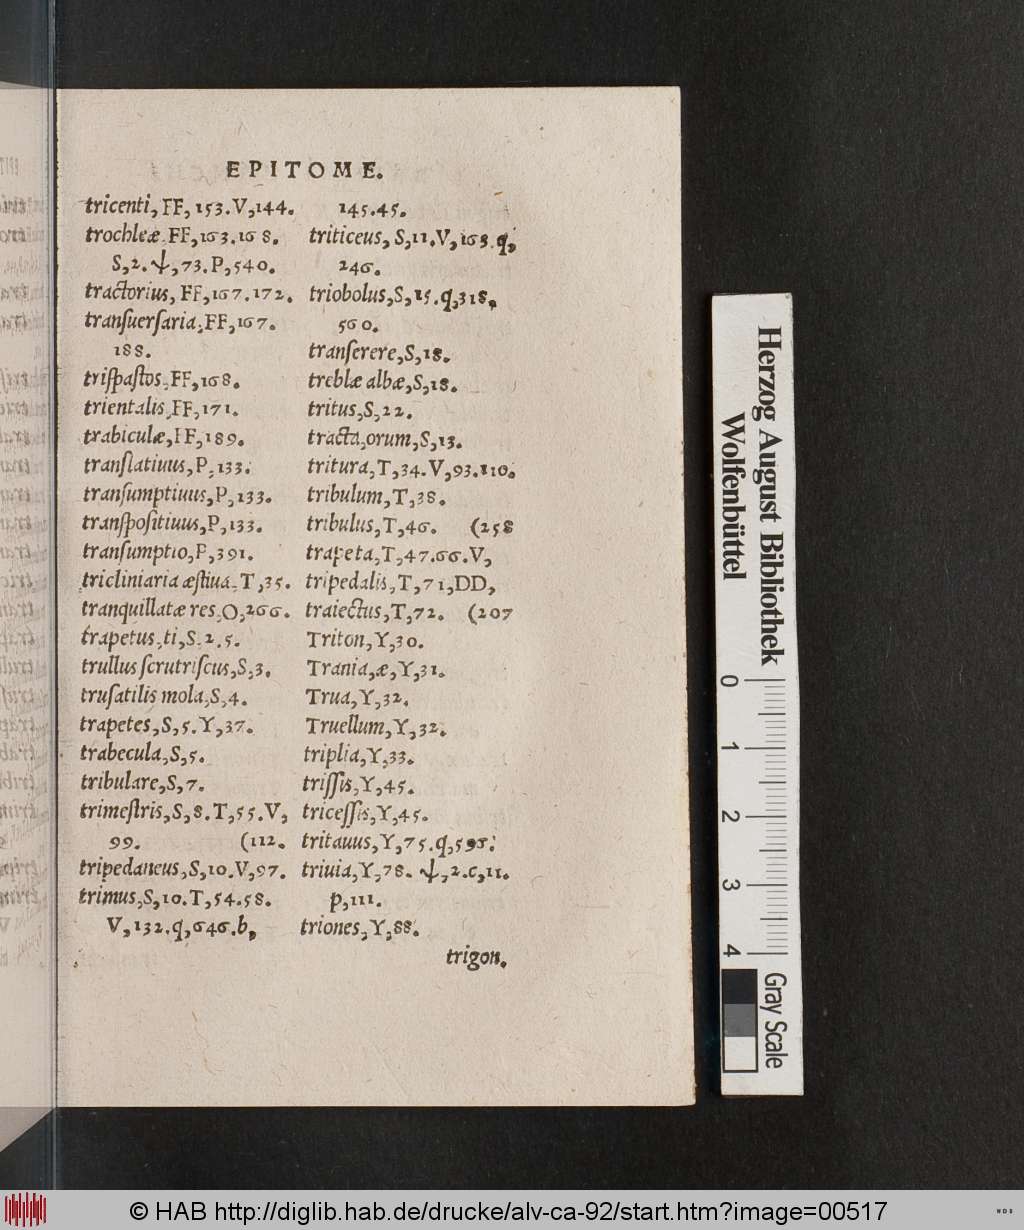 EPITOME.
tricenti, FF, 153. V, 144.
trochleæ. FF, 163. 168.
S, 2. ψ, 73. P, 540.
tractorius, FF, 167. 172.
tranſuerſaria, FF, 167.
188.
triſpaſtos, FF, 168.
trientalis, FF, 171.
trabiculæ, FF, 189.
tranſlatiuus, P, 133.
tranſumptiuus, P, 133.
tranſpoſitiuus, P, 133.
tranſumptio, P, 391.
tricliniaria æſtiua. T, 35.
tranquillatæ res, O, 266.
trapetus, ti, S. 2. 5.
trullus ſcrutriſcus, S, 3.
truſatilis mola, S, 4.
trapetes, S, 5. Y, 37.
trabecula, S, 5.
tribulare, S, 7.
trimeſtris, S, 8. T, 55. V,
99. (112.
tripedaneus, S, 10. V, 97.
trimus, S, 10. T, 54. 58.
V, 132. q, 646. b,
145. 45.
triticeus, S, 11. V, 163. q,
246.
triobolus, S, 15. q, 318,
560.
tranſerere, S, 18.
treblæ albæ, S, 18.
tritus, S, 22.
tracta, orum, S, 13.
tritura, T, 34. V, 93. 110.
tribulum, T, 38.
tribulus, T, 46. (258
trapeta, T, 47. 66. V,
tripedalis, T, 71, DD,
traiectus, T, 72. (207
Triton, Y, 30.
Trania, æ, Y, 31.
Trua, Y, 32.
Truellum, Y, 32.
triplia, Y, 33.
triſſis, Y, 45.
triceſſis, Y, 45.
tritauus, Y, 75. q, 595.
triuia, Y, 78. ψ, 2. c, 11.
p, 111.
triones, Y, 88.
trigon.
Herzog August Bibliothek
Wolfenbüttel
0 1 2 3 4
Gray Scale
© HAB http://diglib.hab.de/drucke/alv-ca-92/start.htm?image=00517